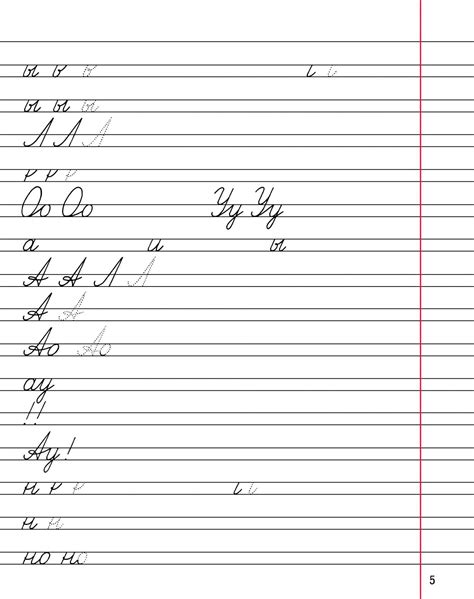 ы ь ь
ы ы ы
Л Л Л
Оо Оо Уу Уу
а и ы
А А Л Л
А А
Ао Ао
ау
!!
Ау!
н
н н
но но
5